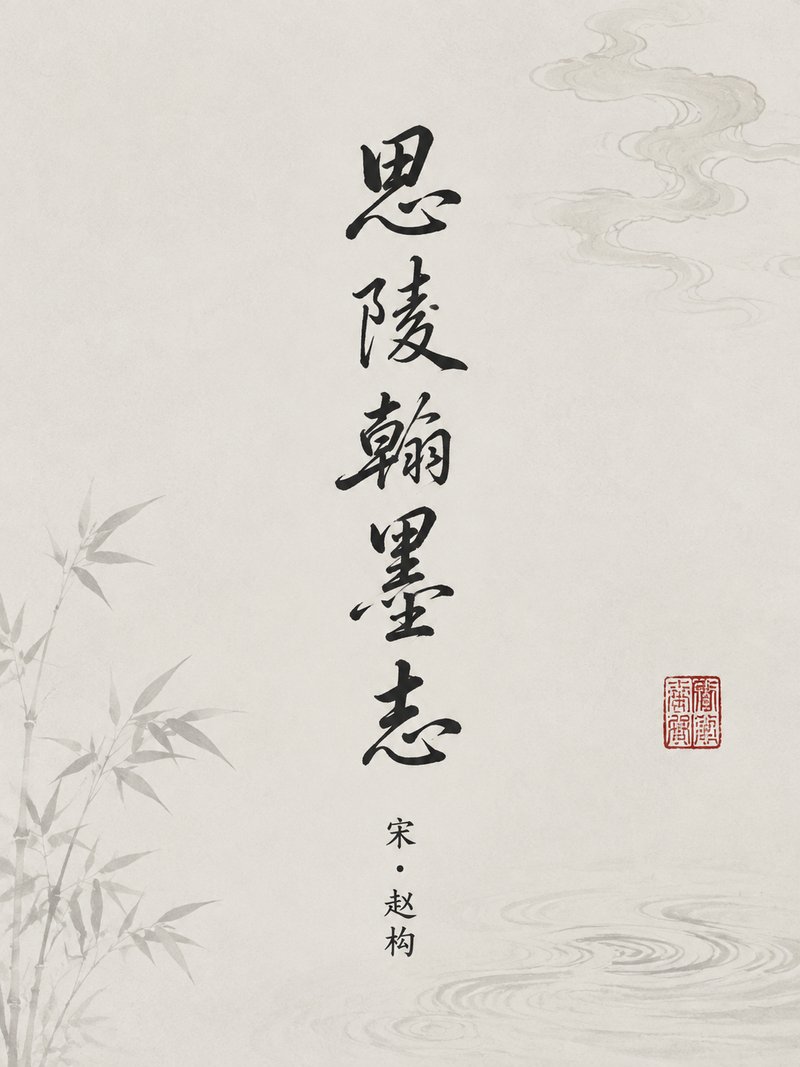 思陵翰墨志
宋·赵构